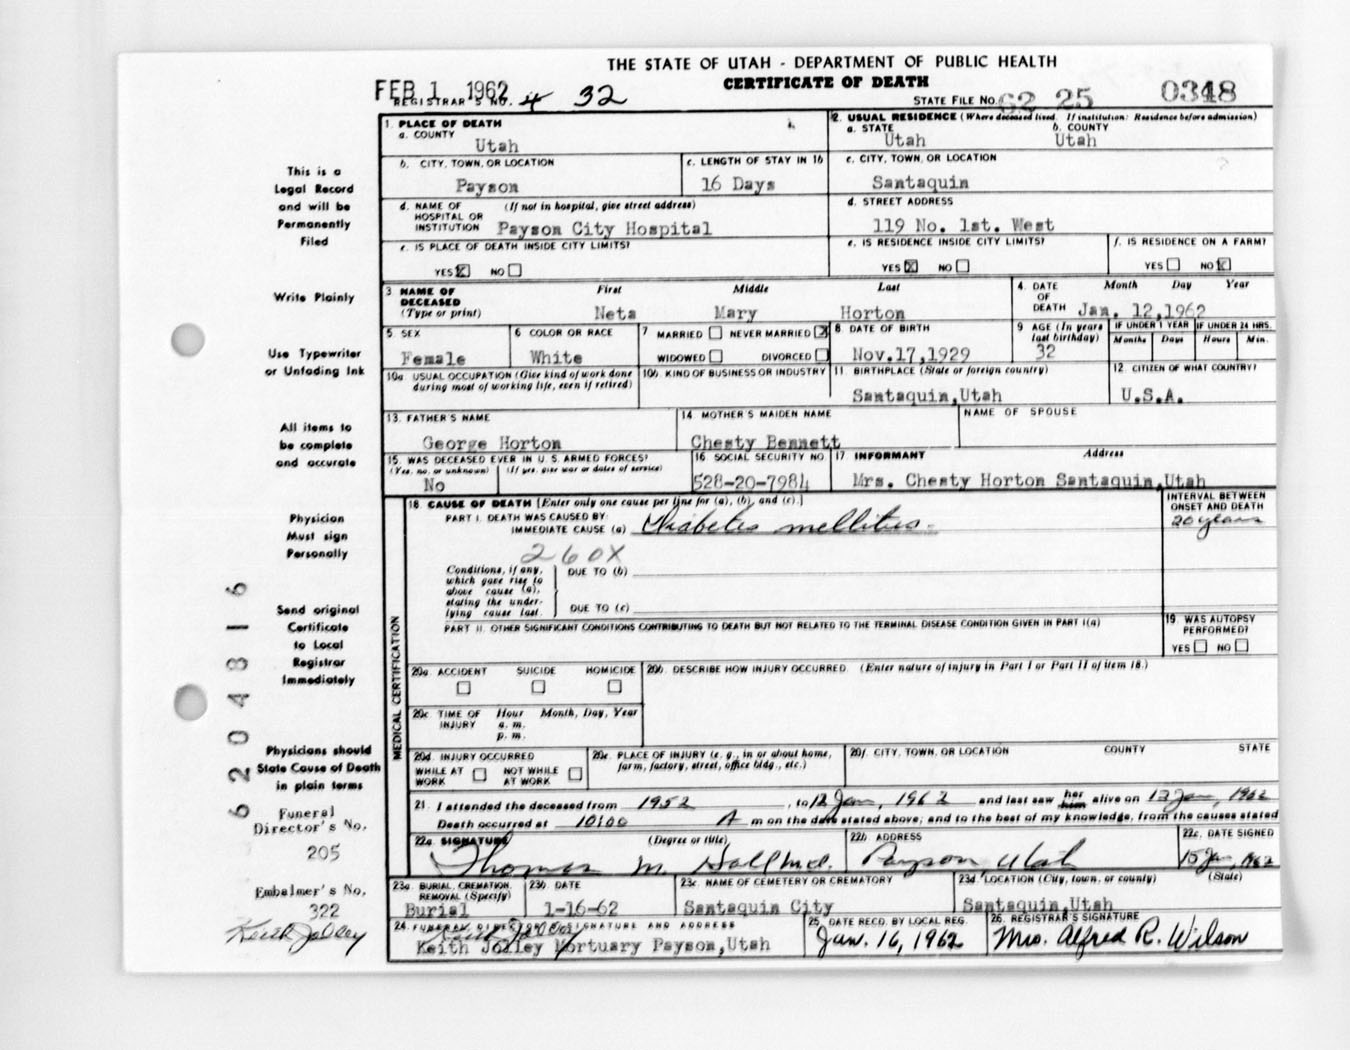 THE STATE OF UTAH - DEPARTMENT OF PUBLIC HEALTH
CERTIFICATE OF DEATH
FEB 1 1962
REGISTRAR'S NO. 4 32
STATE FILE NO. 62 25 0348
1. PLACE OF DEATH
a. COUNTY
Utah
2. USUAL RESIDENCE (Where deceased lived. If institution: Residence before admission)
a. STATE b. COUNTY
Utah Utah
b. CITY, TOWN, OR LOCATION
Payson
c. LENGTH OF STAY IN 1b
16 Days
c. CITY, TOWN, OR LOCATION
Santaquin
d. NAME OF (If not in hospital, give street address)
HOSPITAL OR
INSTITUTION Payson City Hospital
d. STREET ADDRESS
119 No. 1st. West
e. IS PLACE OF DEATH INSIDE CITY LIMITS?
YES X NO
e. IS RESIDENCE INSIDE CITY LIMITS?
YES X NO
f. IS RESIDENCE ON A FARM?
YES NO X
3 NAME OF DECEASED (Type or print)
First Middle Last
Neta Mary Horton
4. DATE OF DEATH Month Day Year
Jan. 12,1962
5 SEX
Female
6 COLOR OR RACE
White
7 MARRIED NEVER MARRIED X
WIDOWED DIVORCED
8 DATE OF BIRTH
Nov.17,1929
9 AGE (In years last birthday)
32
IF UNDER 1 YEAR IF UNDER 24 HRS.
Months Days Hours Min.
10a USUAL OCCUPATION (Give kind of work done during most of working life, even if retired)
10b. KIND OF BUSINESS OR INDUSTRY
11 BIRTHPLACE (State or foreign country)
Santaquin,Utah
12 CITIZEN OF WHAT COUNTRY?
U.S.A.
13. FATHER'S NAME
George Horton
14 MOTHER'S MAIDEN NAME
Chesty Bennett
NAME OF SPOUSE
15. WAS DECEASED EVER IN U.S. ARMED FORCES?
(Yes, no, or unknown) (If yes, give war or dates of service)
No
16 SOCIAL SECURITY NO
528-20-7984
17 INFORMANT Address
Mrs. Chesty Horton Santaquin,Utah
18 CAUSE OF DEATH [Enter only one cause per line for (a), (b), and (c).]
PART I. DEATH WAS CAUSED BY:
IMMEDIATE CAUSE (a) Diabetes mellitus.
INTERVAL BETWEEN ONSET AND DEATH
20 years
260X
Conditions, if any, which gave rise to above cause (a), stating the underlying cause last.
DUE TO (b)
DUE TO (c)
PART II. OTHER SIGNIFICANT CONDITIONS CONTRIBUTING TO DEATH BUT NOT RELATED TO THE TERMINAL DISEASE CONDITION GIVEN IN PART I(a)
19. WAS AUTOPSY PERFORMED?
YES NO
MEDICAL CERTIFICATION
20a. ACCIDENT SUICIDE HOMICIDE
20b. DESCRIBE HOW INJURY OCCURRED. (Enter nature of injury in Part I or Part II of item 18.)
20c TIME OF INJURY Hour Month, Day, Year
a. m.
p. m.
20d. INJURY OCCURRED
WHILE AT WORK NOT WHILE AT WORK
20e. PLACE OF INJURY (e. g., in or about home, farm, factory, street, office bldg., etc.)
20f. CITY, TOWN, OR LOCATION COUNTY STATE
21. I attended the deceased from 1952, to 12 Jan, 1962 and last saw her him alive on 12 Jan, 1962
Death occurred at 10:00 A m on the date stated above; and to the best of my knowledge, from the causes stated
22a. SIGNATURE (Degree or title)
Thomas M. Hall M.D.
22b ADDRESS
Payson Utah
22c. DATE SIGNED
15 Jan, 1962
23a. BURIAL, CREMATION, REMOVAL (Specify)
Burial
23b DATE
1-16-62
23c. NAME OF CEMETERY OR CREMATORY
Santaquin City
23d LOCATION (City, town, or county) (State)
Santaquin,Utah
24. FUNERAL DIRECTOR'S SIGNATURE AND ADDRESS
Keith Jolley
Keith Jolley Mortuary Payson,Utah
25. DATE RECD. BY LOCAL REG.
Jan. 16, 1962
26. REGISTRAR'S SIGNATURE
Mrs. Alfred R. Wilson
This is a
Legal Record
and will be
Permanently
Filed
Write Plainly
Use Typewriter
or Unfading Ink
All items to
be complete
and accurate
Physician
Must sign
Personally
Send original
Certificate
to Local
Registrar
Immediately
Physicians should
State Cause of Death
in plain terms
Funeral
Director's No.
205
Embalmer's No.
322
Keith Jolley
62 04816